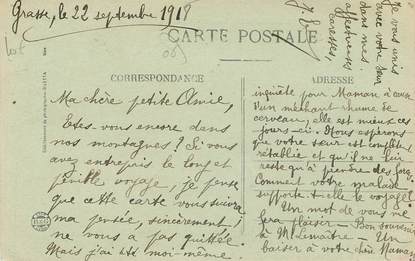 Grasse, le 22 septembre 1918
CARTE POSTALE
CORRESPONDANCE
Ma chère petite Amie,
Etes-vous encore dans
nos montagnes? Si vous
avez entrepris le long et
pénible voyage, je pense
que cette carte vous suivra
ma pensée, sincèrement,
ne vous a pas quittée.
Mais j'ai été moi-même
ADRESSE
inquiète pour Maman à cause
d'un méchant rhume de
cerveau, elle est mieux ces
jours-ci. Nous espérons
que votre sœur est complèt.
rétablie et qu'il ne lui
reste qu'à prendre des forces
Comment votre malade
supporte-t-elle le voyage?
Un mot de vous me
fera plaisir — Bon souvenir
à Mr Lemaître — Un
baiser à votre chère Maman
Je vous unis
avec votre sœur
dans mes
affectueuses
caresses,